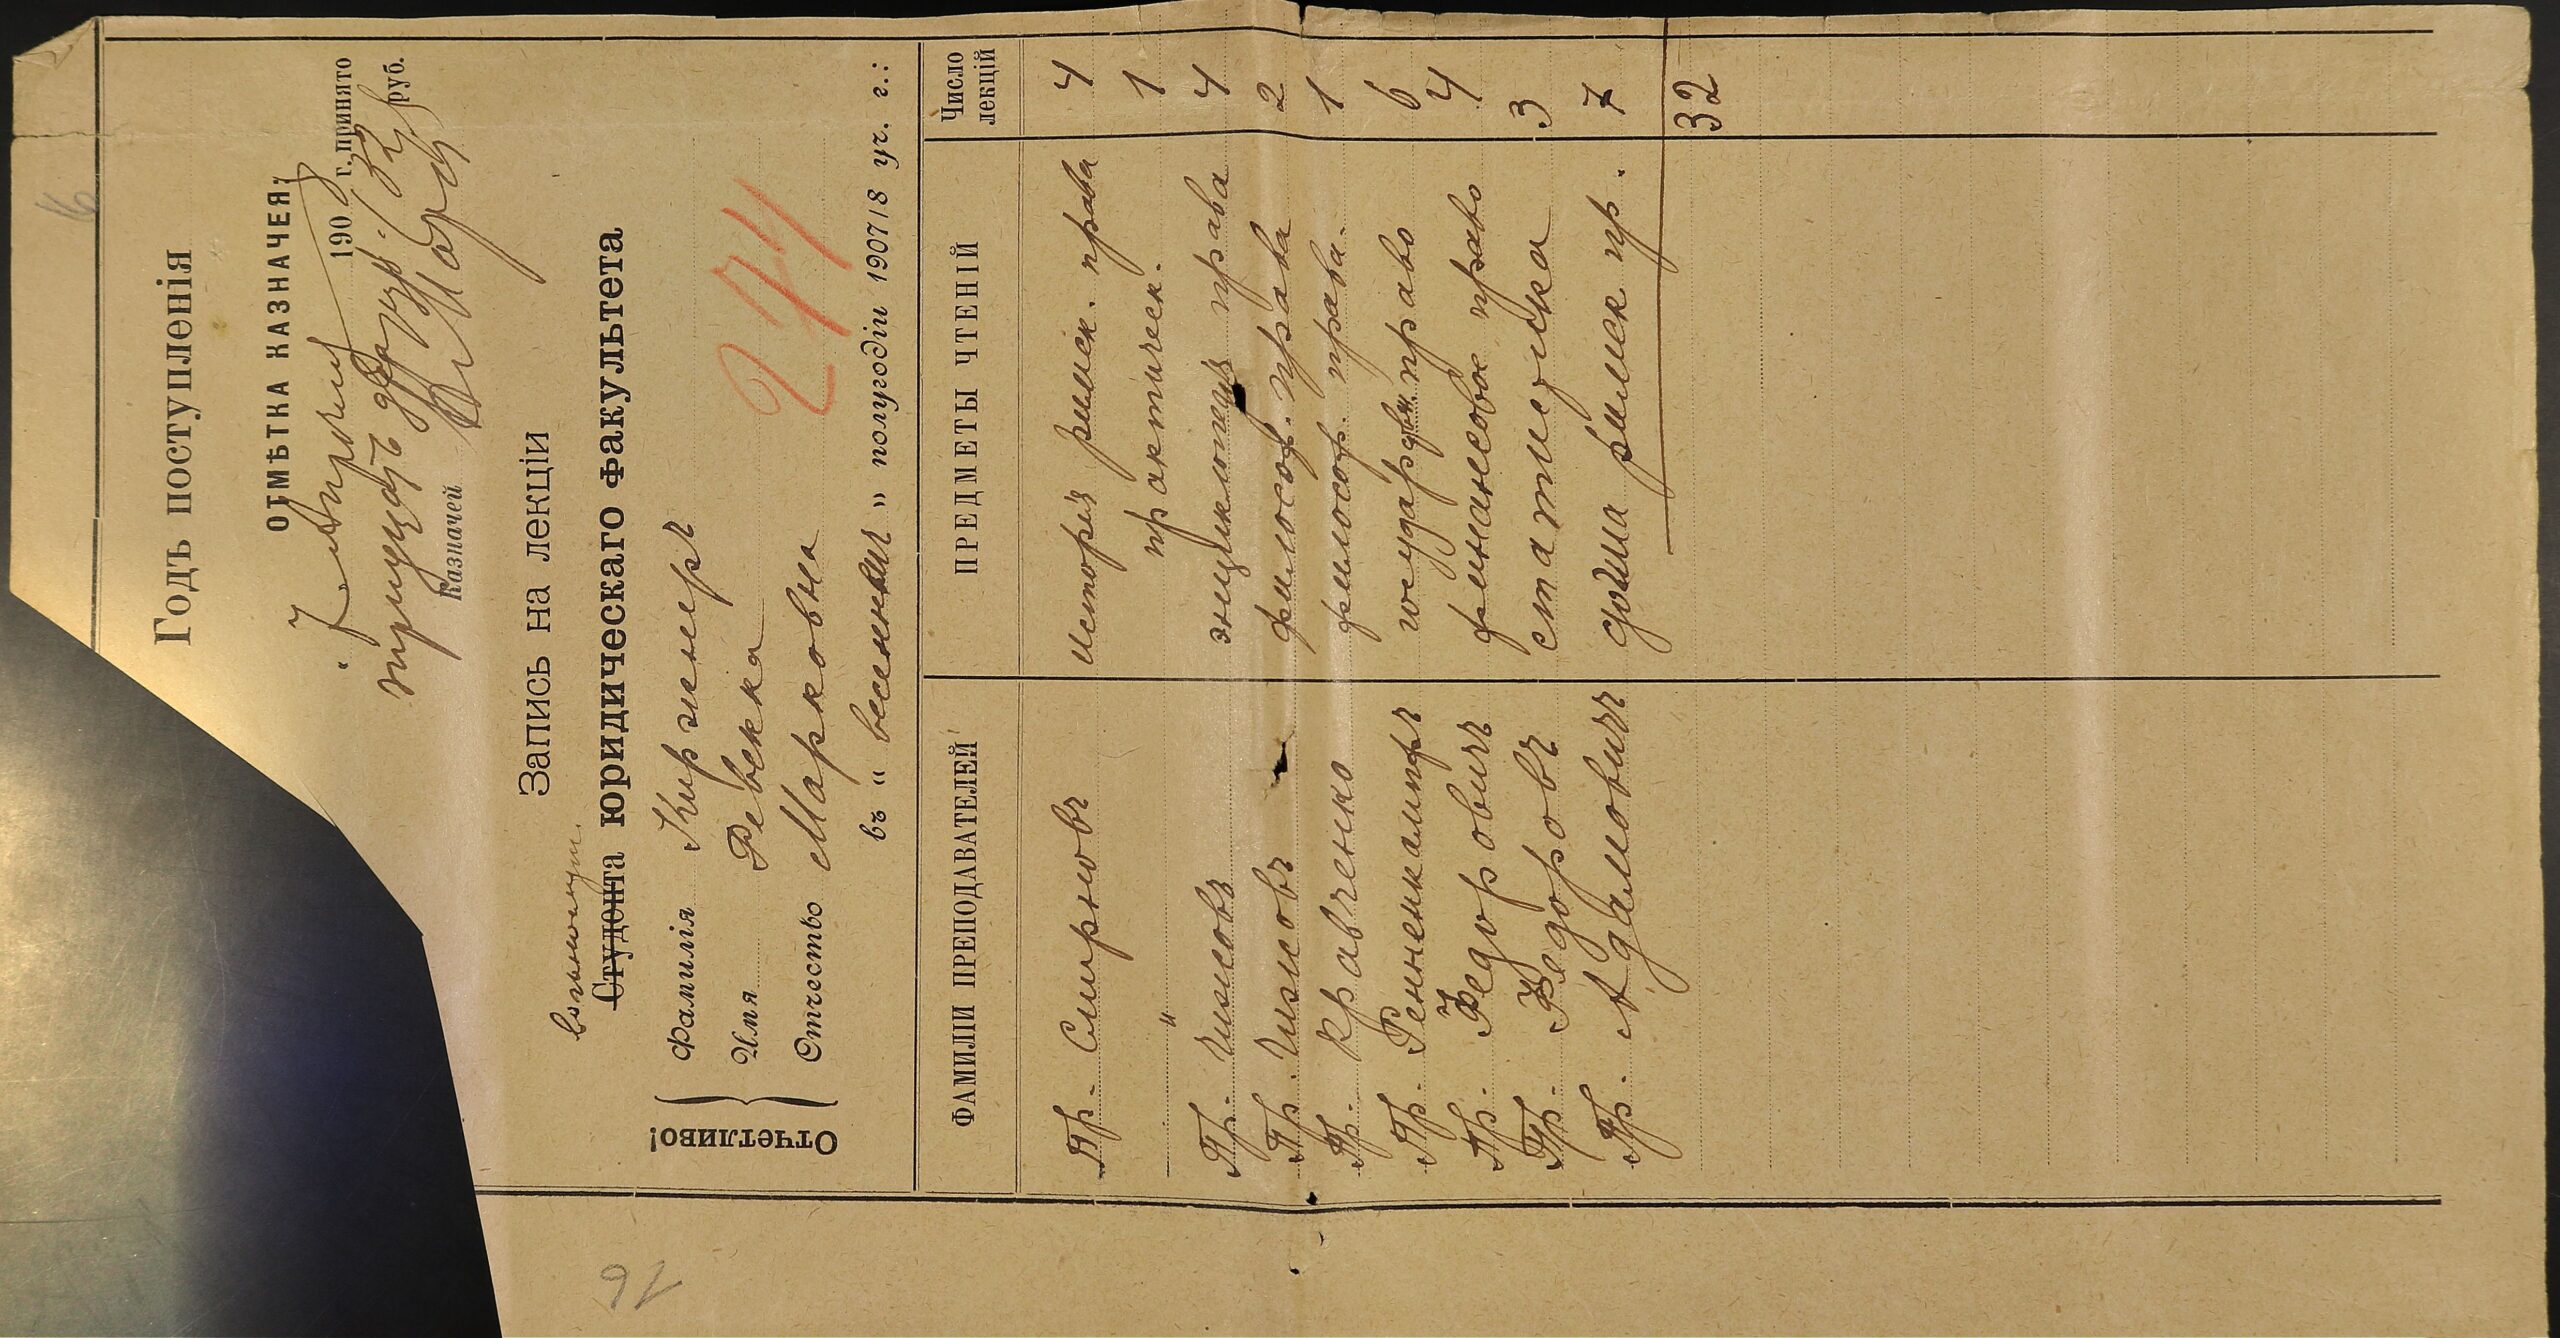 16
Годъ поступленія
ОТМѢТКА КАЗНАЧЕЯ:
„7“ Апрѣля 1908 г. принято
тридцать два руб. /32/ руб.
Казначей
Запись на лекціи
вольнослуш.
Студента юридическаго факультета
Отчетливо!
Фамилія Киржнеръ
Имя Ревекка
Отчество Марковна
274
въ „весеннемъ“ полугодіи 1907/8 уч. г.:
ФАМИЛІИ ПРЕПОДАВАТЕЛЕЙ ПРЕДМЕТЫ ЧТЕНІЙ Число лекцій
Пр. Смирновъ исторія римск. права 4
„ практическ. 1
Пр. Чижовъ энциклопедія права 4
Пр. Чижовъ философ. права 2
Пр. Кравченко философ. права. 1
Пр. Ренненкампфъ государствен. право 6
Пр. Федоровичъ финансовое право 4
Пр. Федоровъ статистика 3
Пр. Адамовичъ догма римск пр. 7
32
16